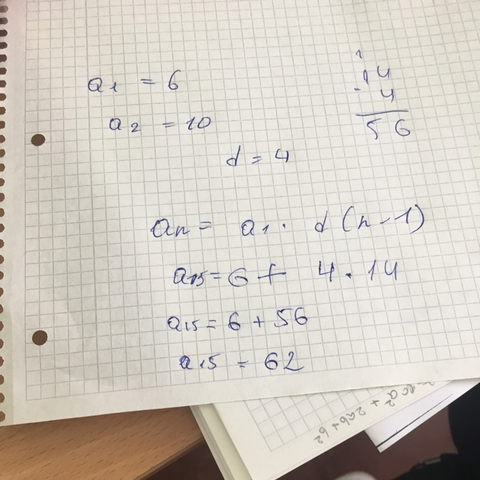 a₁ = 6
a₂ = 10
d = 4
14
· 4
56
aₙ = a₁ · d (n - 1)
a₁₅ = 6 + 4 · 14
a₁₅ = 6 + 56
a₁₅ = 62
a² + 2ab + b²